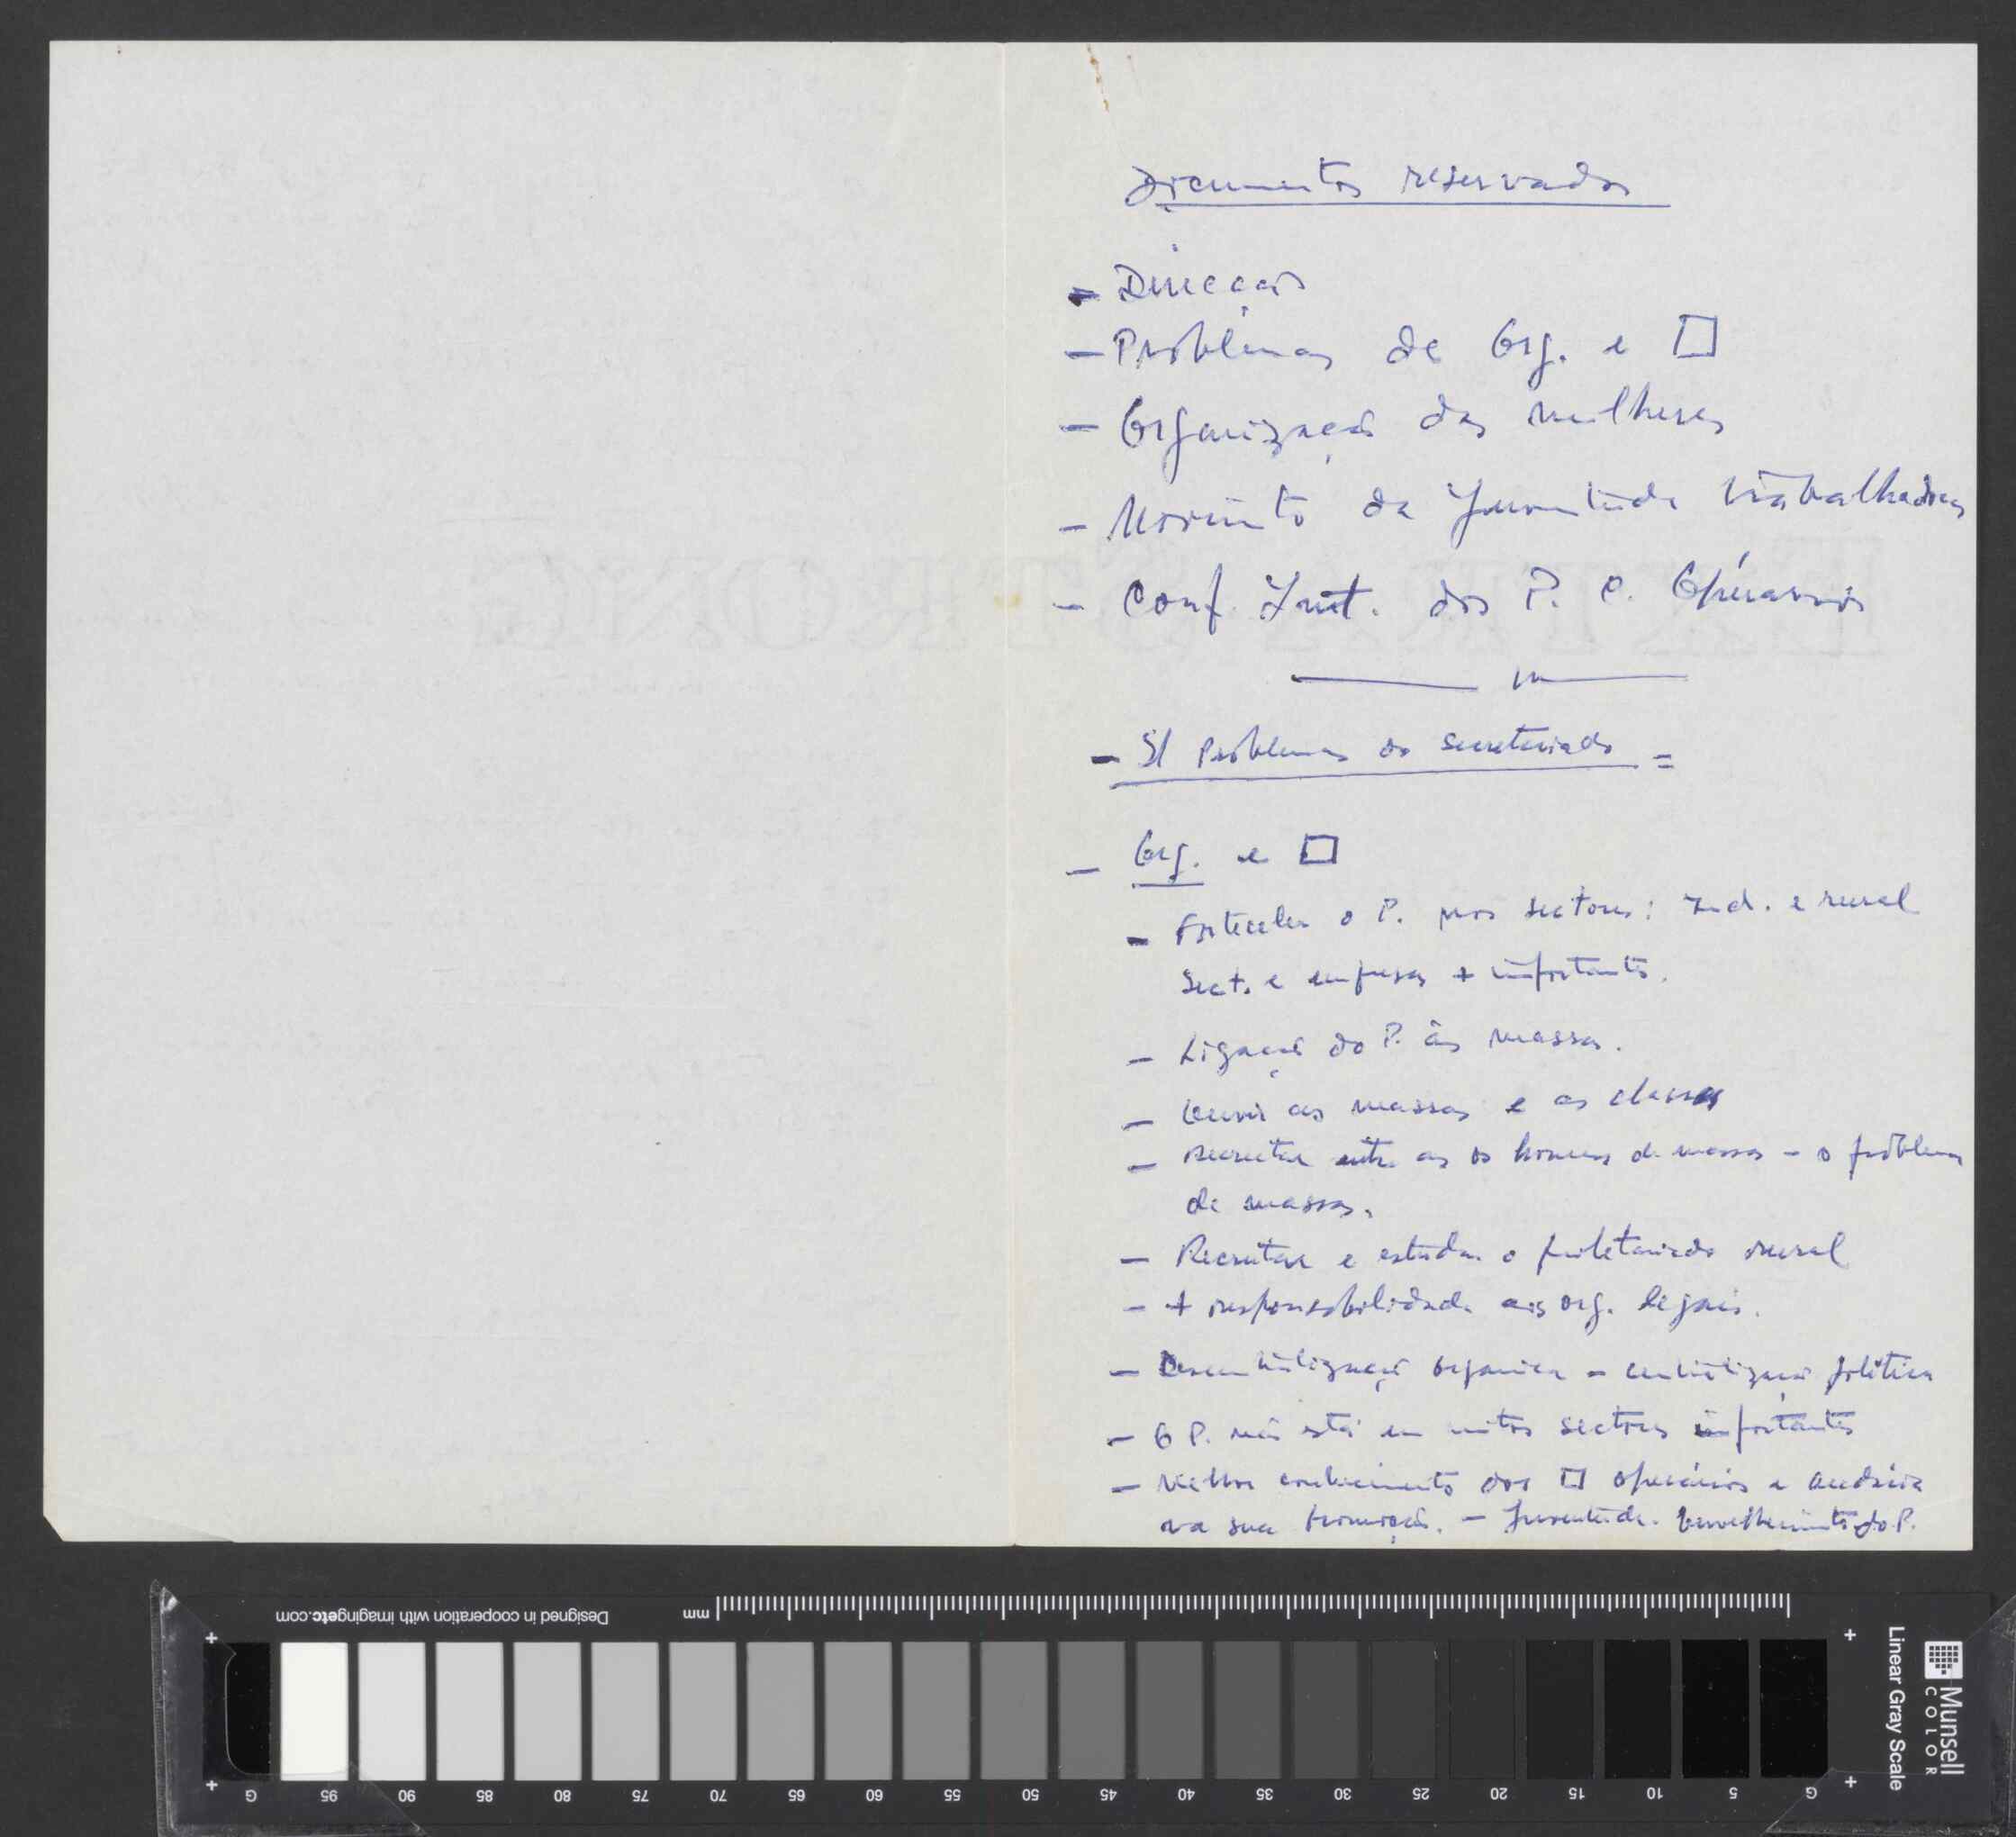 Documentos reservados
- Direcção
- Problemas de Org. e □
- Organização das mulheres
- Movimento da Juventude trabalhadora
- Conf. Int. dos P. C. Operários
- S/ Problemas do Secretariado =
- Org. e □
- Fortalecer o P. nos sectores: Ind. e rural
Sect. e empresas + importantes.
- Ligação do P. às massas.
- Ouvir as massas e as classes
- Recrutar entre as os homens de massas - o problema
de massas.
- Recrutar e estudar o proletariado rural
- + responsabilidade às org. legais.
- Descentralização orgânica - centralização política
- O P. não está em mtos sectores importantes
- Melhor conhecimento dos □ operários e audácia
na sua promoção. - Juventude. Envelhecimento do P.
Designed in cooperation with imagingetc.com
mm
Linear Gray Scale
Munsell
COLOR
G 95 90 85 80 75 70 65 60 55 50 45 40 35 30 25 20 15 10 5 G